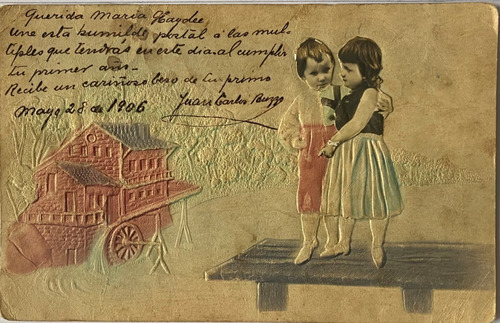 Querida Maria Haydee
une esta humilde postal á las mul-
tiples que tendrás en este dia al cumplir
tu primer año -
Recibe un cariñoso beso de tu primo
Juan Carlos Buzzo
Mayo 28 de 1906